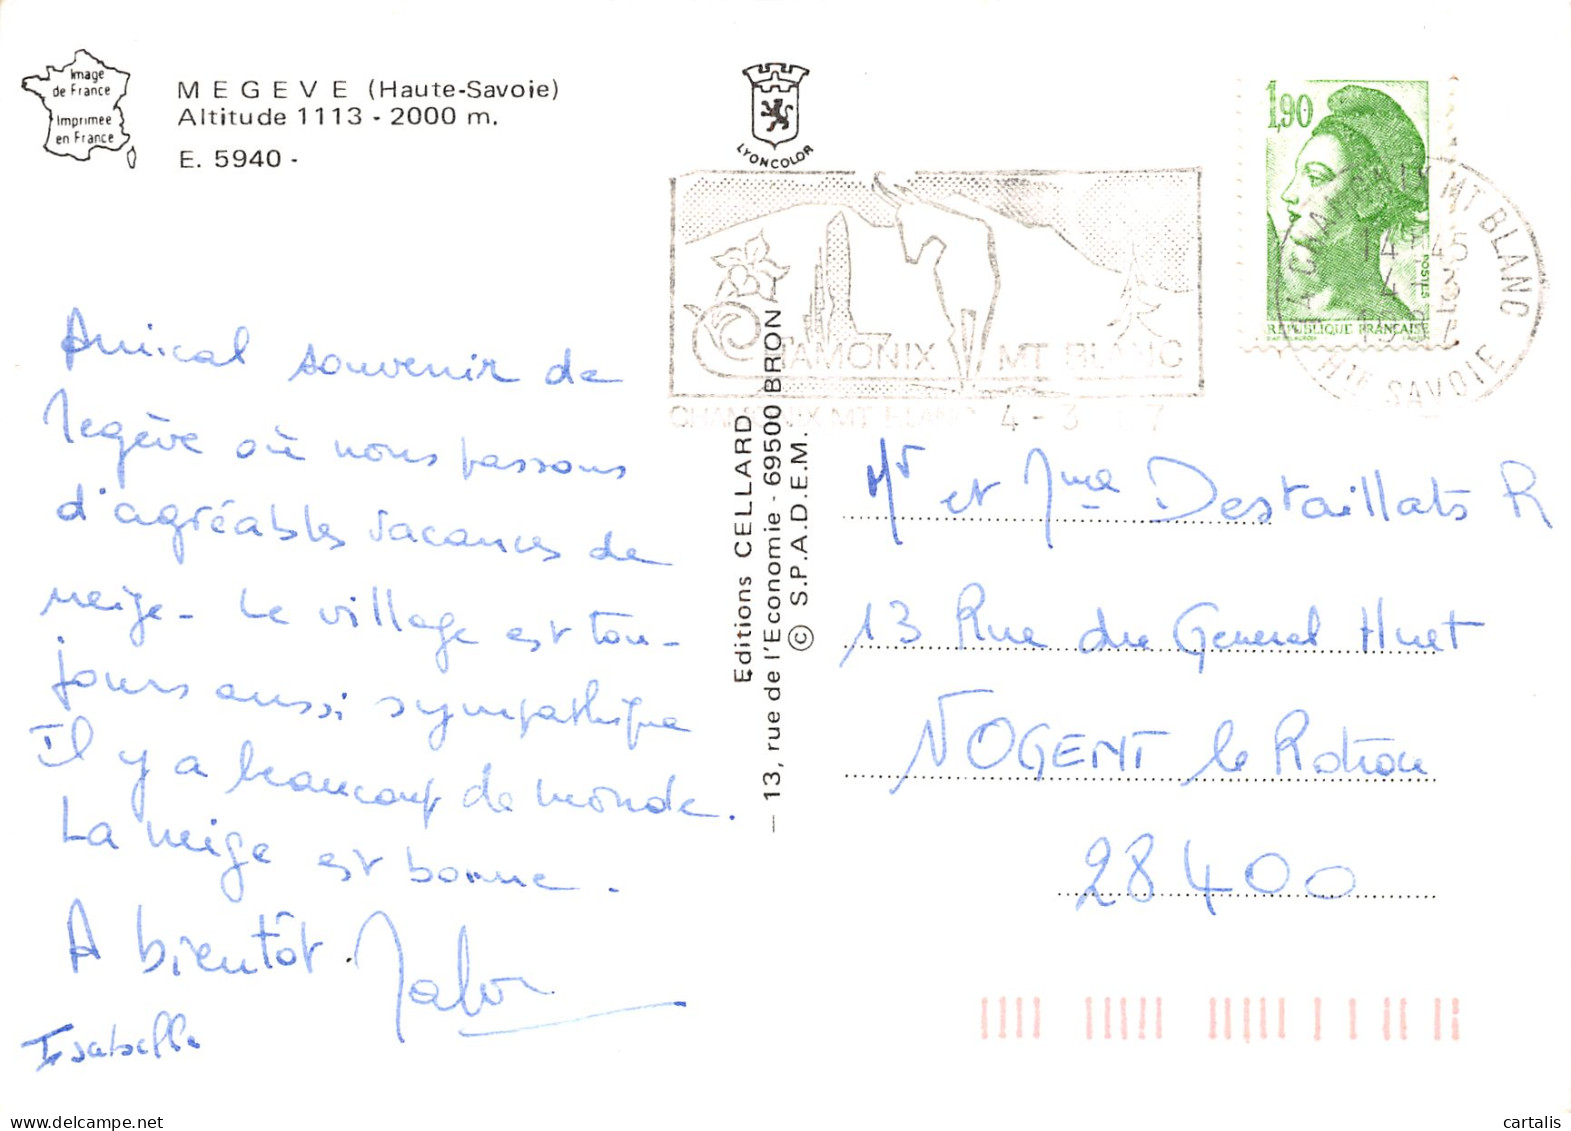 Image
de France
Imprimee
en France
MEGEVE (Haute-Savoie)
Altitude 1113 - 2000 m.
E. 5940 -
LYONCOLOR
1,90
POSTES
REPUBLIQUE FRANÇAISE
CHAMONIX MT BLANC
14H45
4-3
HTE SAVOIE
CHAMONIX MT BLANC
CHAMONIX MT BLANC 4-3 7
Editions CELLARD
— 13, rue de l'Economie - 69500 BRON
© S.P.A.D.E.M.
Amical souvenir de
Megève où nous passons
d'agréables vacances de
neige - Le village est tou-
jours aussi sympathique
Il y a beaucoup de monde.
La neige est bonne.
A bientôt.
Isabelle
Mr et Mme Destaillats R
13 Rue du General Huet
NOGENT le Rotrou
28400
cartalis